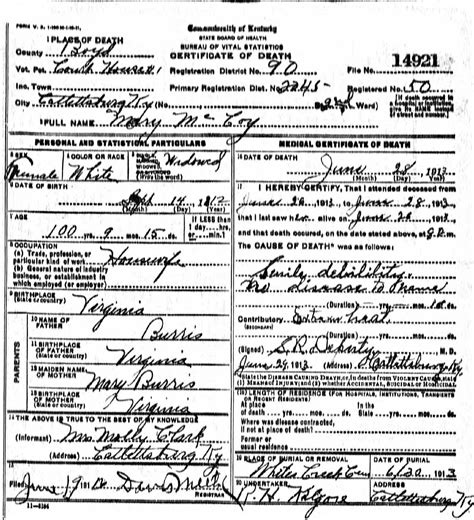 Commonwealth of Kentucky
STATE BOARD OF HEALTH
BUREAU OF VITAL STATISTICS
CERTIFICATE OF DEATH
1 PLACE OF DEATH
County Boyd
Vot. Pct. Court House
Registration District No. 90
File No. 14921
Inc. Town
Primary Registration Dist. No. 2245
Registered No. 50
City Catlettsburg Ky
(No. St. 2nd Ward)
[If death occurred in a hospital or institution, give its NAME instead of street and number.]
FULL NAME Mary McCoy
PERSONAL AND STATISTICAL PARTICULARS
SEX Female
COLOR OR RACE White
Widowed
(Write the word)
DATE OF BIRTH
Sept 14 1812
(Month) (Day) (Year)
AGE
100 yrs. 9 mos. 15 ds.
If LESS than 1 day, hrs. or min.?
OCCUPATION
(a) Trade, profession, or particular kind of work Housewife
(b) General nature of industry business, or establishment in which employed (or employer)
BIRTHPLACE
(State or country) Virginia
PARENTS
10 NAME OF FATHER Burris
11 BIRTHPLACE OF FATHER
(State or country) Virginia
12 MAIDEN NAME OF MOTHER Mary Burris
13 BIRTHPLACE OF MOTHER
(State or country) Virginia
THE ABOVE IS TRUE TO THE BEST OF MY KNOWLEDGE
(Informant) Mrs. Molly Clark
(Address) Catlettsburg Ky
Filed June 191
REGISTRAR
MEDICAL CERTIFICATE OF DEATH
16 DATE OF DEATH
June 28 1913
(Month) (Day) (Year)
I HEREBY CERTIFY, That I attended deceased
from June 26 1913, to June 28, 1913,
that I last saw her alive on June 28, 1913,
and that death occurred, on the date stated above, at 9 P.m.
The CAUSE OF DEATH* was as follows:
Senile debilibity.
No disease to name
(Duration) yrs. mos. ds.
Contributory Extreme heat
(Secondary)
(Duration) yrs. mos. ds.
(Signed) M. D.
June 29 1913 (Address) Catlettsburg Ky
LENGTH OF RESIDENCE (For Hospitals, Institutions, Transients or Recent Residents)
At place of death yrs. mos. ds. In the State yrs. mos. ds.
Where was disease contracted, if not at place of death?
Former or usual residence
PLACE OF BURIAL OR REMOVAL
DATE OF BURIAL
Whites Creek Cem
6/30 1913
20 UNDERTAKER
R. H. Kilgore
ADDRESS
Catlettsburg Ky